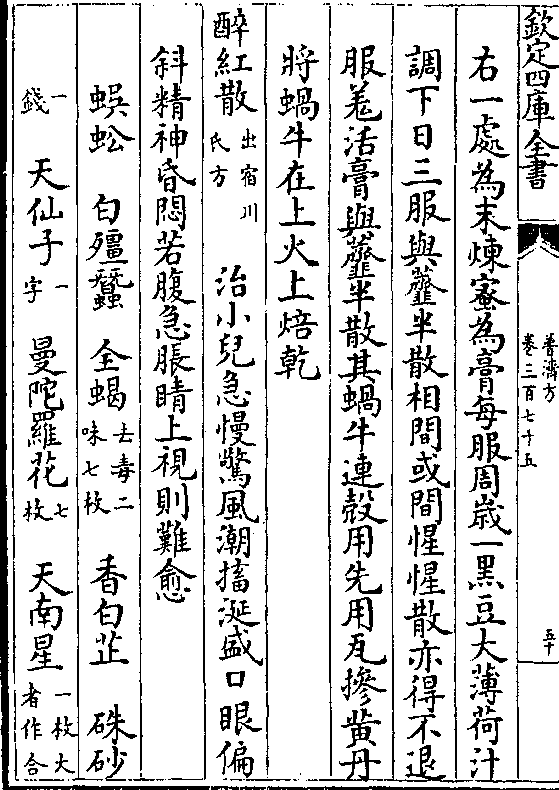 欽定四庫全書
普濟方
卷三百七十五
五十
右一處為末煉蜜為膏每服周歲一黑豆大薄荷汁
調下日三服與虀半散相間或間惺惺散亦得不退
服羗活膏與虀半散其蝸牛連殼用先用瓦摻黃丹
將蝸牛在上火上焙乾
醉紅散出宿川氏方 治小兒急慢驚風潮搐涎盛口眼偏
斜精神昏悶若腹急脹睛上視則難愈
蜈蚣 白殭蠶 全蝎去毒二味七枚 香白芷 硃砂
一錢 天仙子一字 曼陀羅花七枚 天南星一枚大者作合